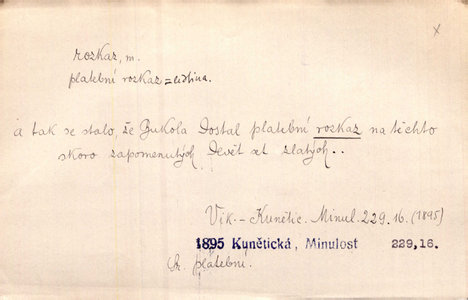 x
rozkaz, m.
platební rozkaz =
a tak se stalo, že Bukola dostal platební rozkaz na těchto
skoro zapomenutých devět set zlatých..
Vik. - Kunětic. Minul. 229. 16. (1895)
1895 Kunětická, Minulost 229,16.
platební.